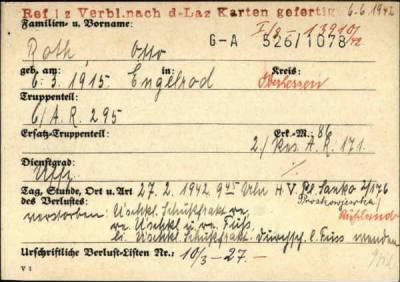 Ref I z Verbl.nach d-Laz Karten gefertig 6.6.1942
Familien- u. Vorname: I/3 - 13910/42
Roth, Otto G-A 526/1078
geb. am: in: Kreis:
6. 3. 1915. Engelrod Oberhessen
Truppenteil:
6/A.R. 295
Ersatz-Truppenteil: Erk.-M. 86
2./ Res. A.R. 171.
Dienstgrad:
Uffz.
Tag, Stunde, Ort u. Art 27. 2. 1942 9 45 Uhr H.V.Pl. Sanko 2/176
des Verlustes:
verstorben: U'schkl. Schußfrakt. re.
re. U'schkl. u. re. Fuß.
li. U'schkl. Schußfrakt. Durchsch. l. Fuss wunden
Urschriftliche Verlust-Listen Nr.: 10/3 - 27 -
V 1